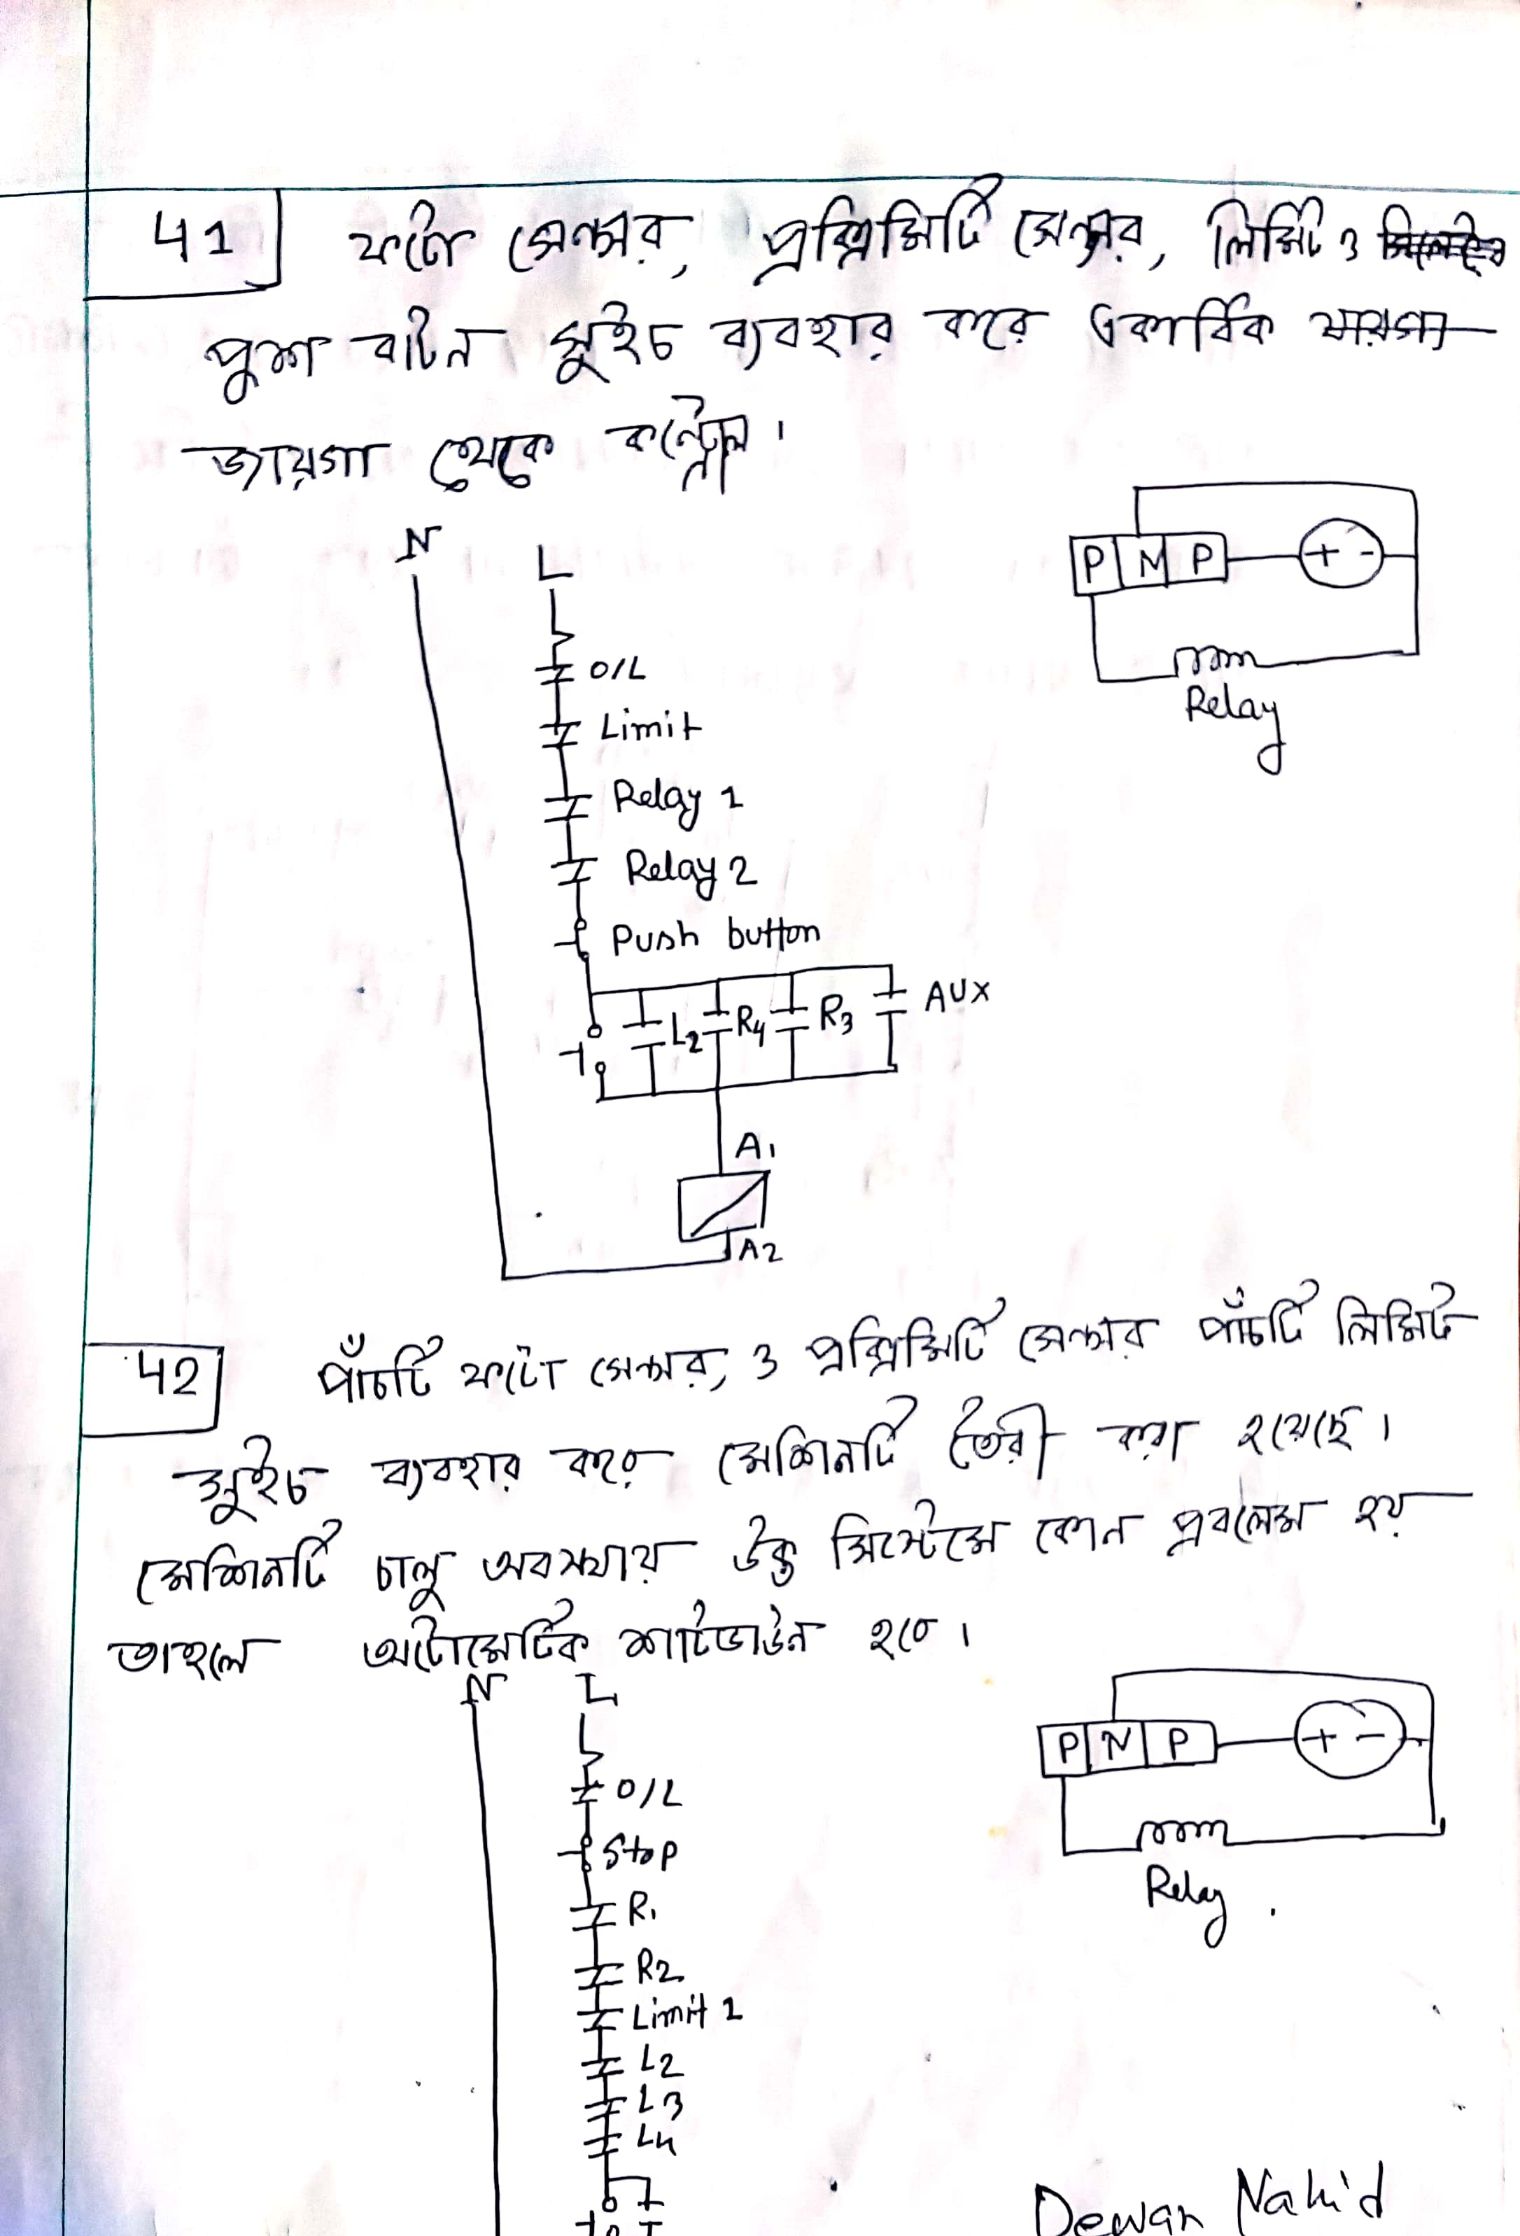 41 ফটো সেন্সর, প্রক্সিমিটি সেন্সর, লিমিট ও
পুশ বাটন সুইচ ব্যবহার করে একাধিক
জায়গা থেকে কন্ট্রোল।
N L
P N P + -
O/L
Limit
Relay
Relay 1
Relay 2
Push button
L2 R4 R3 AUX
A1
A2
42 পাঁচটি ফটো সেন্সর, ও প্রক্সিমিটি সেন্সর পাঁচটি লিমিট
সুইচ ব্যবহার করে মেশিনটি তৈরী করা হয়েছে।
মেশিনটি চালু অবস্থায় উক্ত সিস্টেমে কোন প্রবলেম হয়
তাহলে অটোমেটিক শাটডাউন হবে।
N L
P N P + -
O/L
Stop
Relay
R1
R2
Limit 1
L2
L3
L4
Dewan Nahid